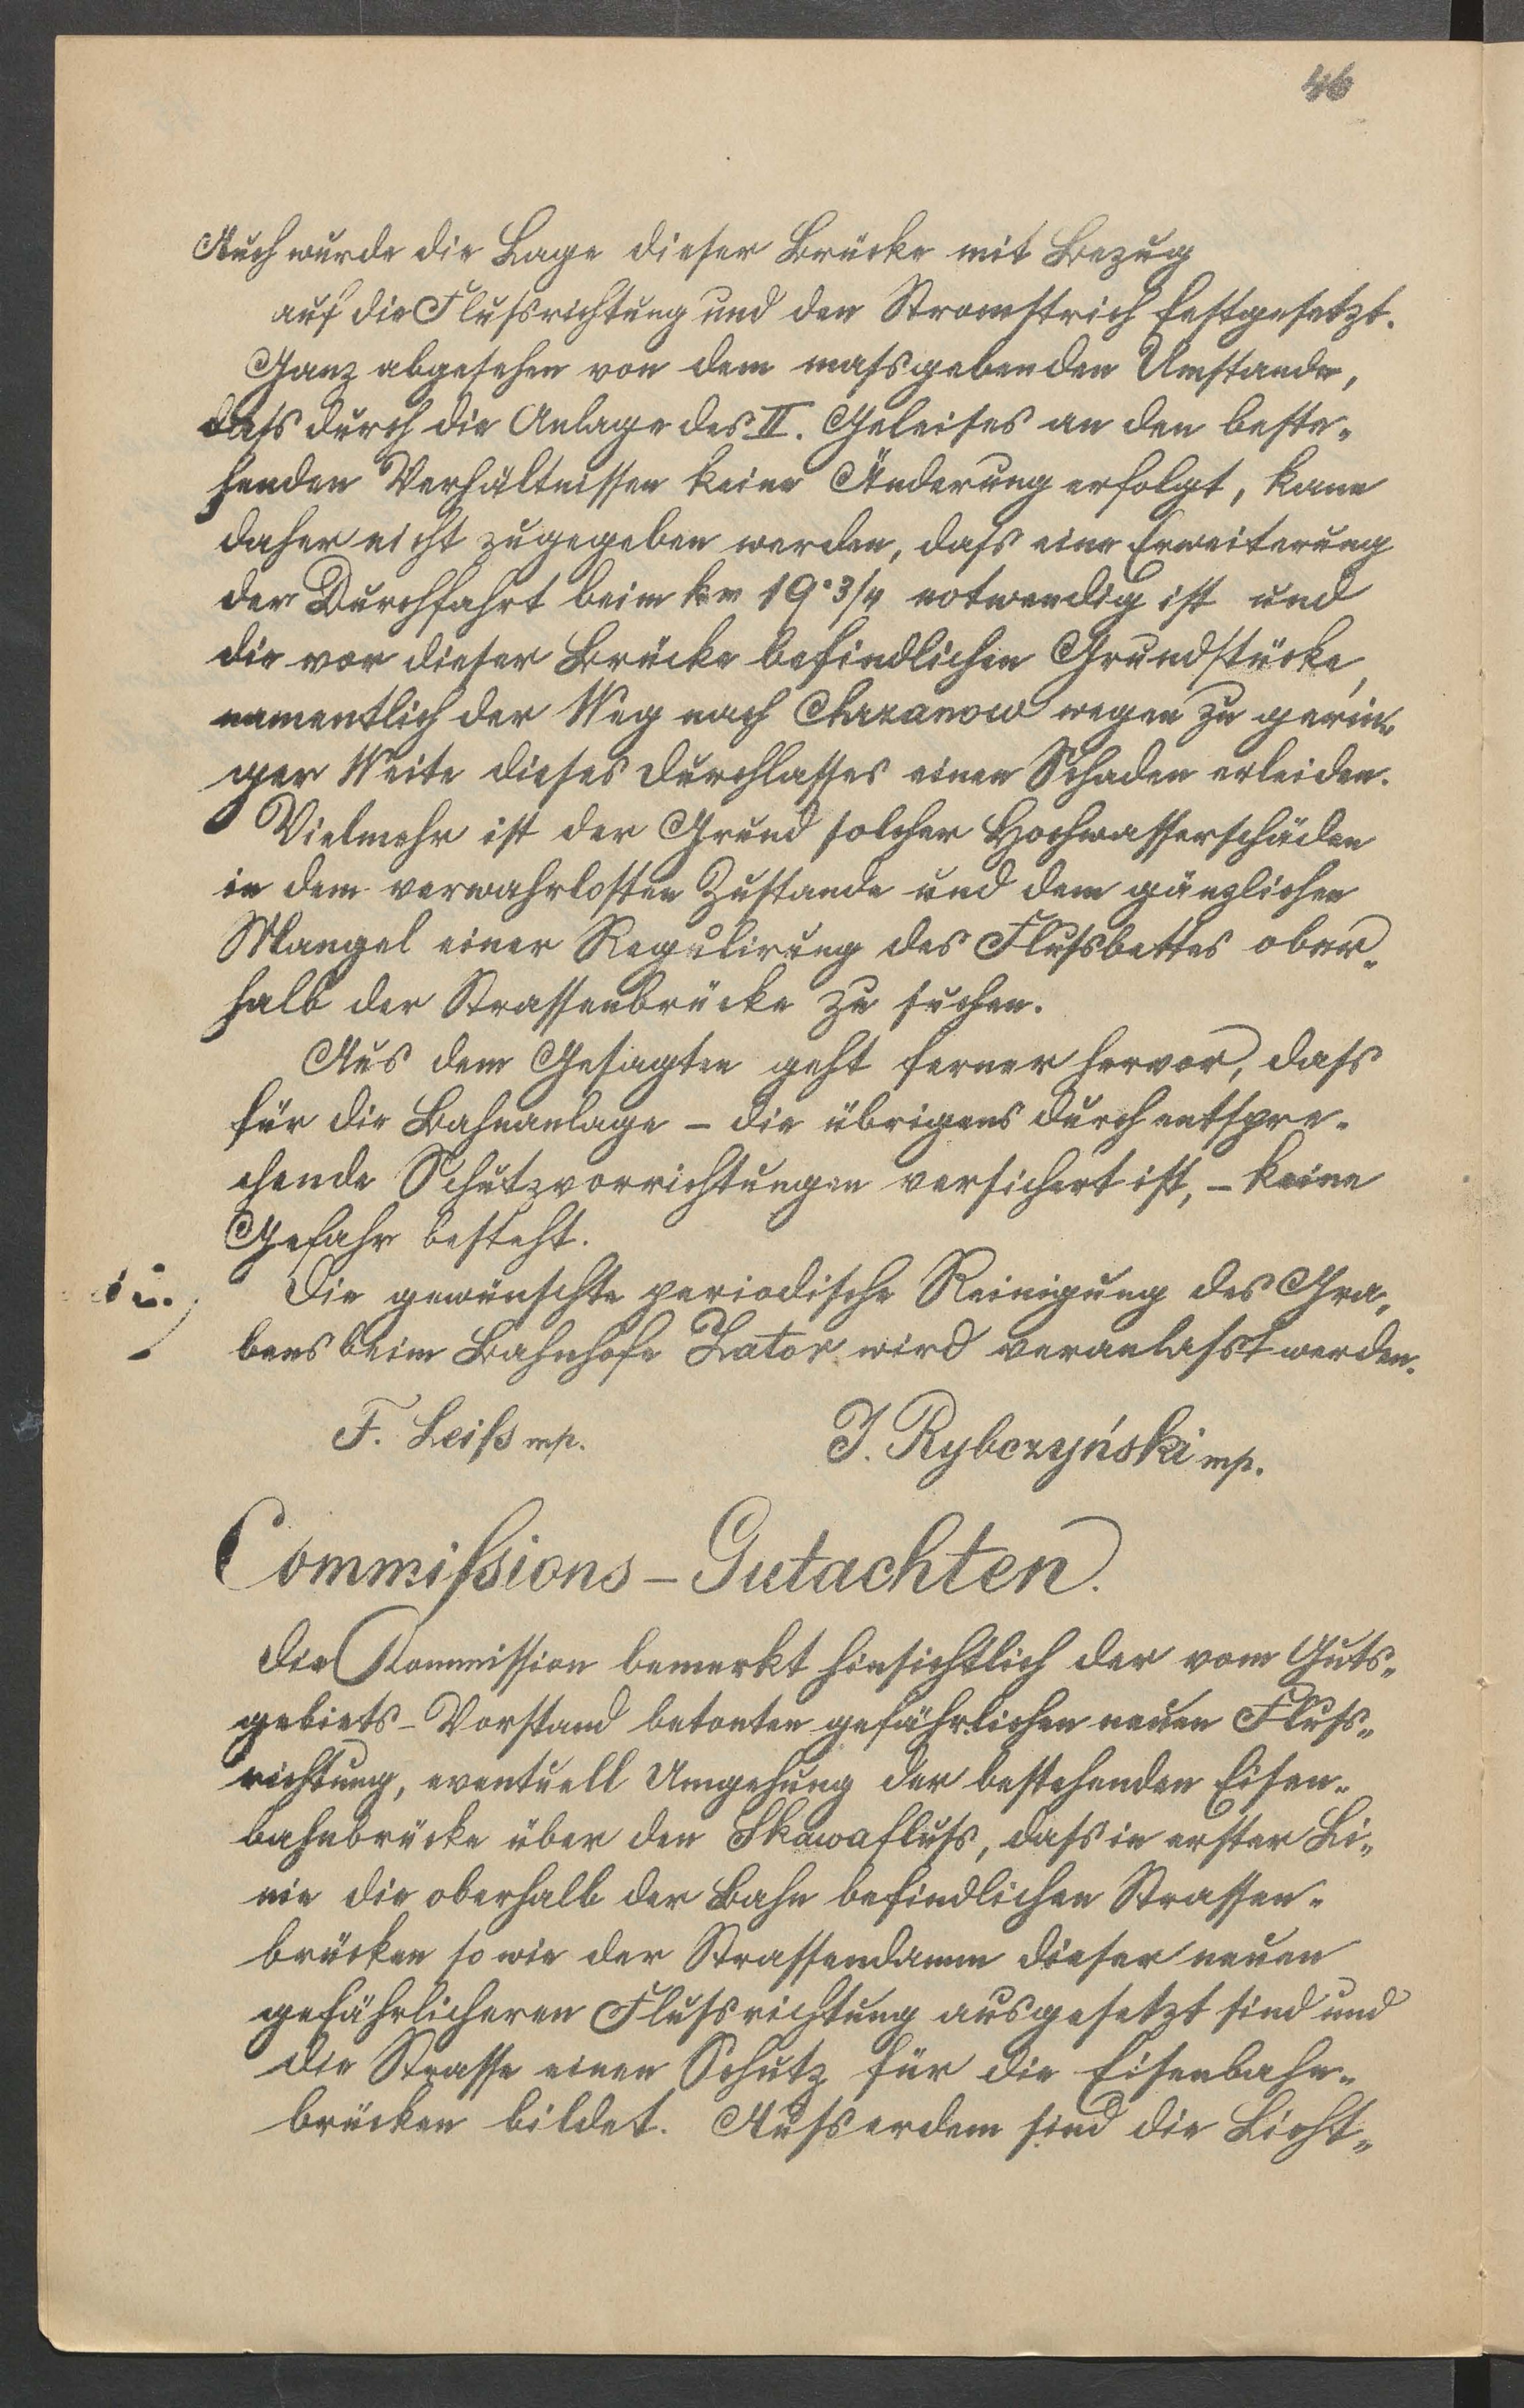 46
Auch wurde die Lage dieser Brücke mit Bezug
auf die Flußsrichtung und den Stromstrich festgesetzt.
Ganz abgesehen von dem massgebenden Umstande,
dass durch die Anlage des II. Geleises an den beste-
henden Verhältnissen keine Änderung erfolgt, kann
daher nicht zugegeben werden, dass eine Erweiterung
der Durchfahrt beim km 19·3/4 notwendig ist und
die vor dieser Brücke befindlichen Grundstücke,
namentlich der Weg nach Chrzanow wegen zu gerin-
ger Weite dieses Durchlasses einen Schaden erleiden.
Vielmehr ist der Grund solcher Hochwasserschäden
in dem verwahrlosten Zustande und dem gänzlichen
Mangel einer Regulirung des Flussbettes ober-
halb der Strassenbrücke zu suchen.
Aus dem Gesagten geht ferner hervor, dass
für die Bahnanlage – die übrigens durch entspre-
chende Schutzvorrichtungen versichert ist, – keine
Gefahr besteht.
Die gewünschte periodische Reinigung des Gra-
bens beim Bahnhofe Zator wird veranlasst werden.
F. Leiß mp. J. Rybczyński mp.
Commißions-Gutachten.
Die Kommission bemerkt hinsichtlich der vom Guts-
gebiets-Vorstand betonten gefährlichen neuen Fluss-
richtung, eventuell Umgehung der bestehenden Eisen-
bahnbrücke über den Skawafluss, dass in erster Li-
nie die oberhalb der Bahn befindlichen Strassen-
brücken so wie der Strassendamm dieser neuen
gefährlicheren Flussrichtung ausgesetzt sind und
die Strasse einen Schutz für die Eisenbahn-
brücken bildet. Ausserdem sind die Licht-